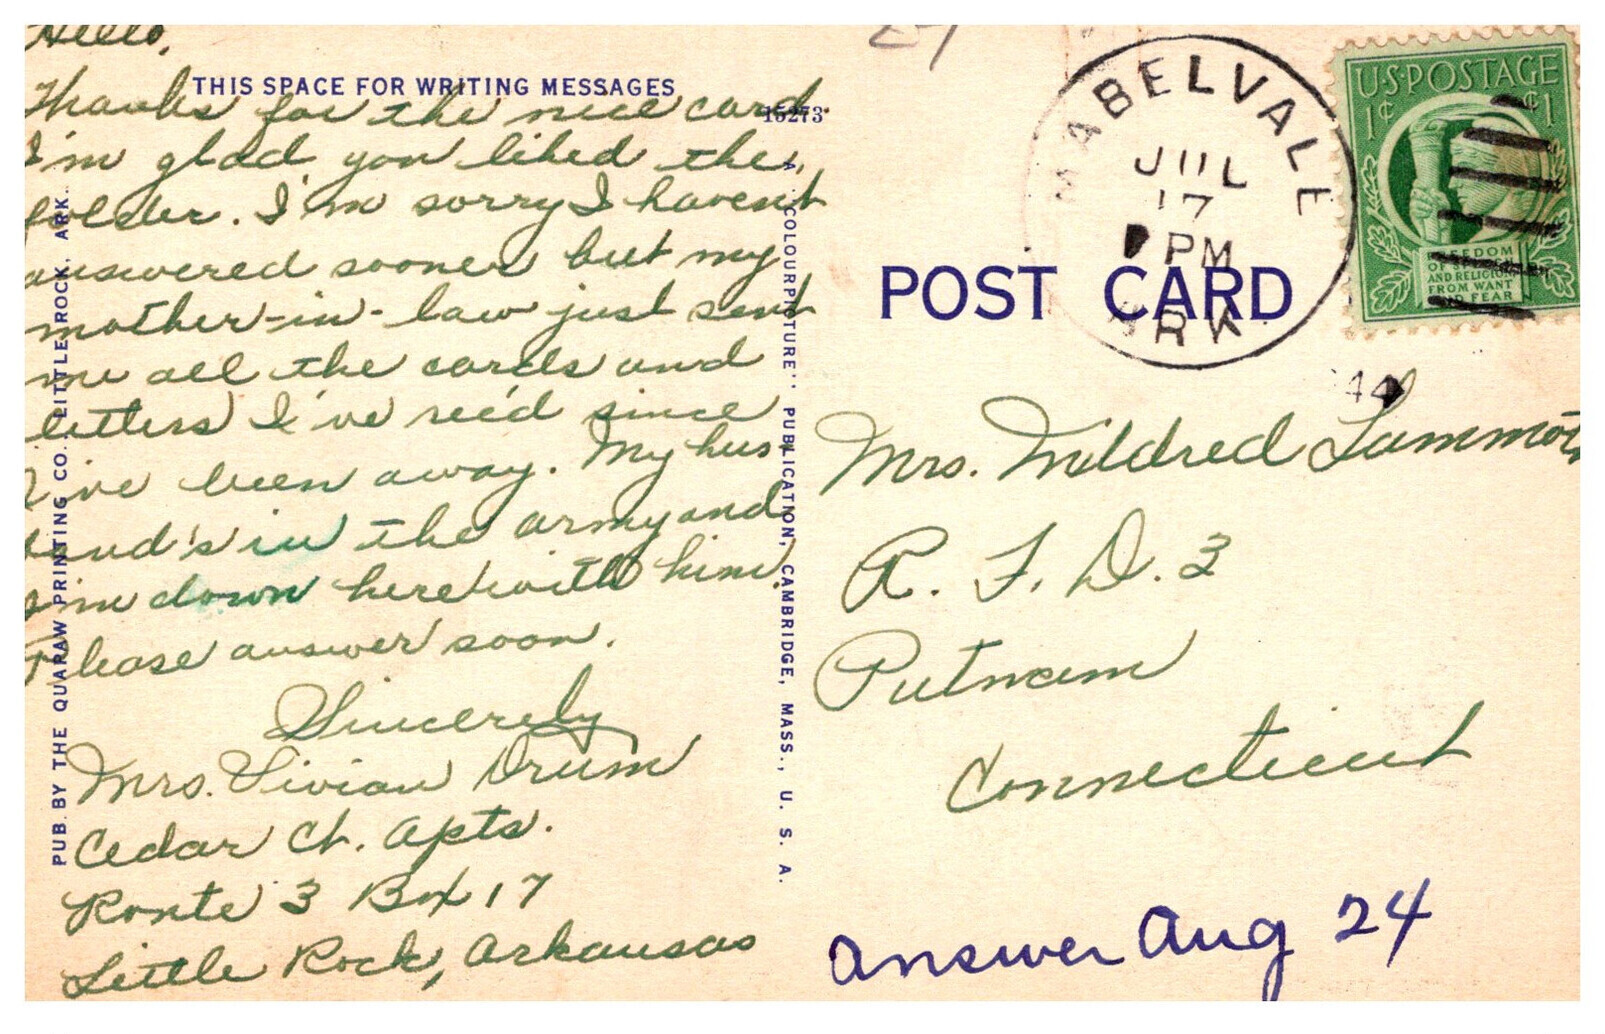 Hello,
THIS SPACE FOR WRITING MESSAGES
Thanks for the nice card.
I'm glad you liked the
folder. I'm sorry I havent
answered sooner but my
mother-in-law just sent
me all the cards and
letters I've rec'd since
I've been away. My hus-
band's in the army and
I'm down here with him.
Please answer soon.
Sincerely
Mrs. Vivian Drum
Cedar Ct. Apts.
Route 3 Box 17
Little Rock, Arkansas
PUB. BY THE QUARAW PRINTING CO., LITTLE ROCK, ARK.
15273
A "COLOURPICTURE" PUBLICATION, CAMBRIDGE, MASS., U. S. A.
MABELVALE
JUL
17
PM
ARK.
44
U.S. POSTAGE
1¢ ¢1
FREEDOM
OF SPEECH
AND RELIGION,
FROM WANT
AND FEAR
POST CARD
Mrs. Mildred
R. F. D. 3
Putnam
Connecticut
answer Aug 24